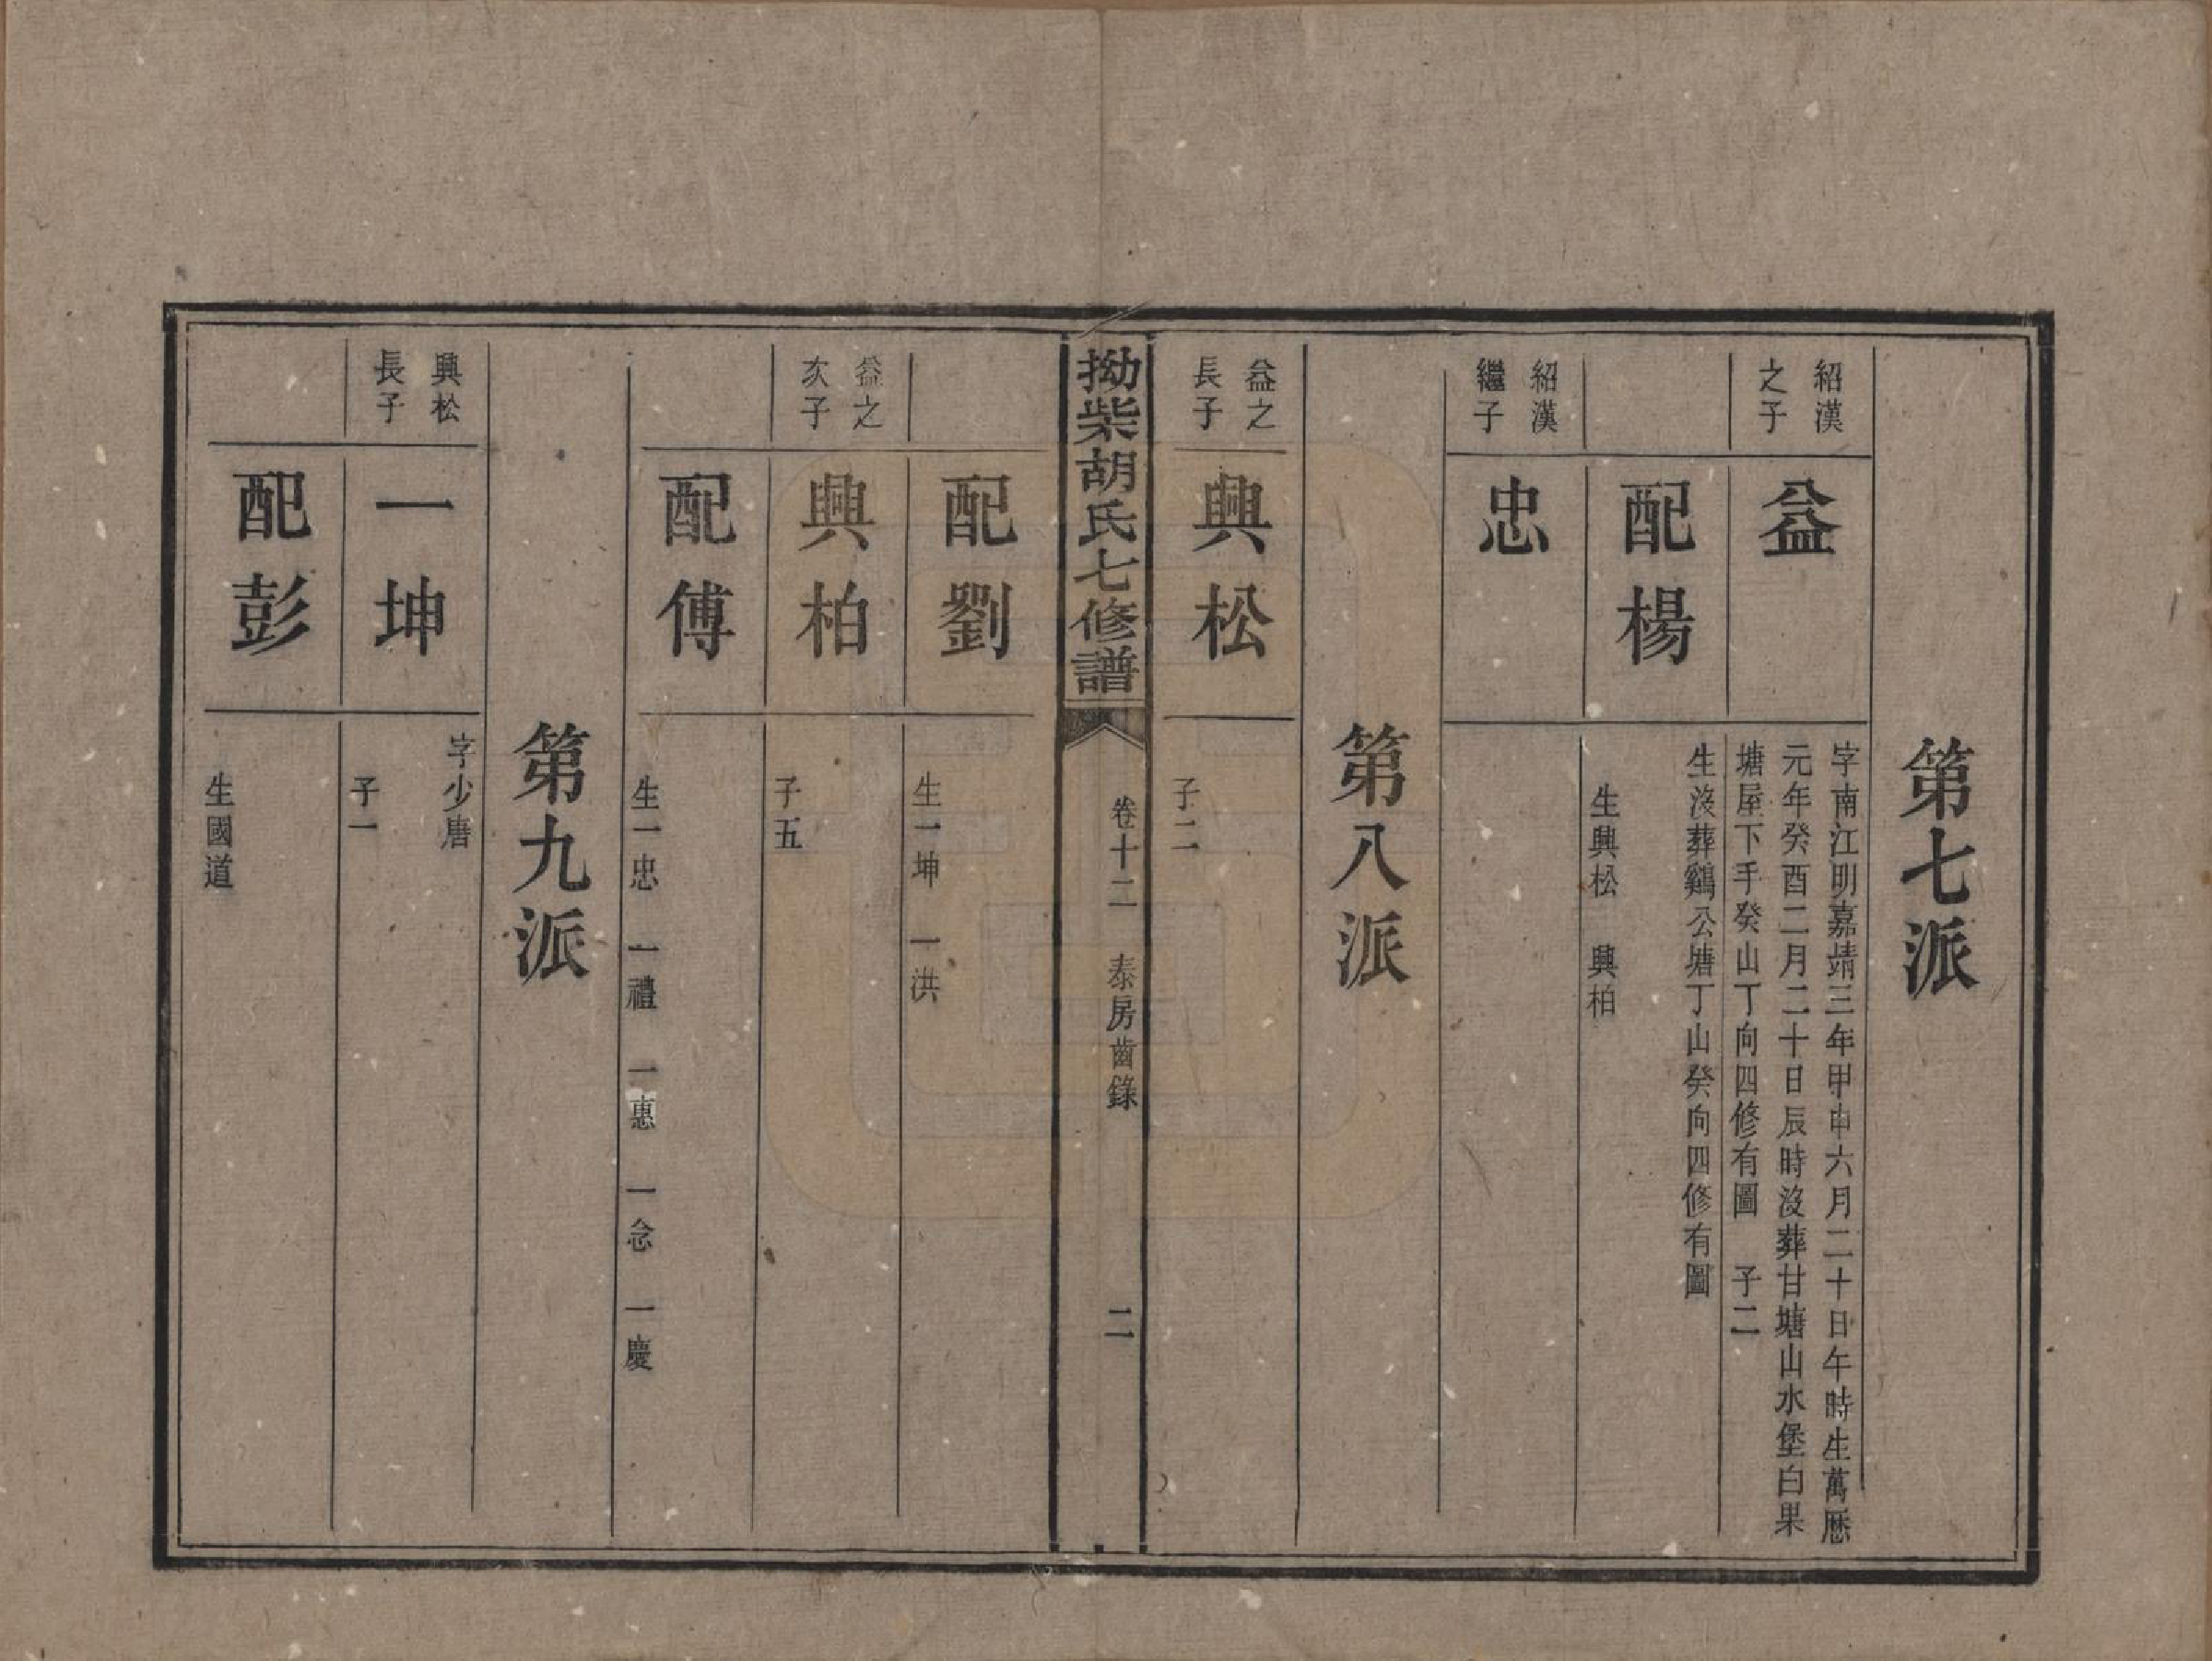 第七派
紹漢
之子
益
字南江明嘉靖三年甲申六月二十日午時生萬厯
元年癸酉二月二十日辰時沒葬甘塘山水堡白果
塘屋下手癸山丁向四修有圖　子二
配楊
生沒葬鷄公塘丁山癸向四修有圖
生興松　興柏
紹漢
繼子
忠
第八派
益之
長子
興松
子二
拗柴胡氏七修譜
卷十二　泰房齒錄
二
配劉
生一坤　一洪
益之
次子
興柏
子五
配傅
生一忠　一禮　一惠　一念　一慶
第九派
興松
長子
一坤
字少唐
子一
配彭
生國道